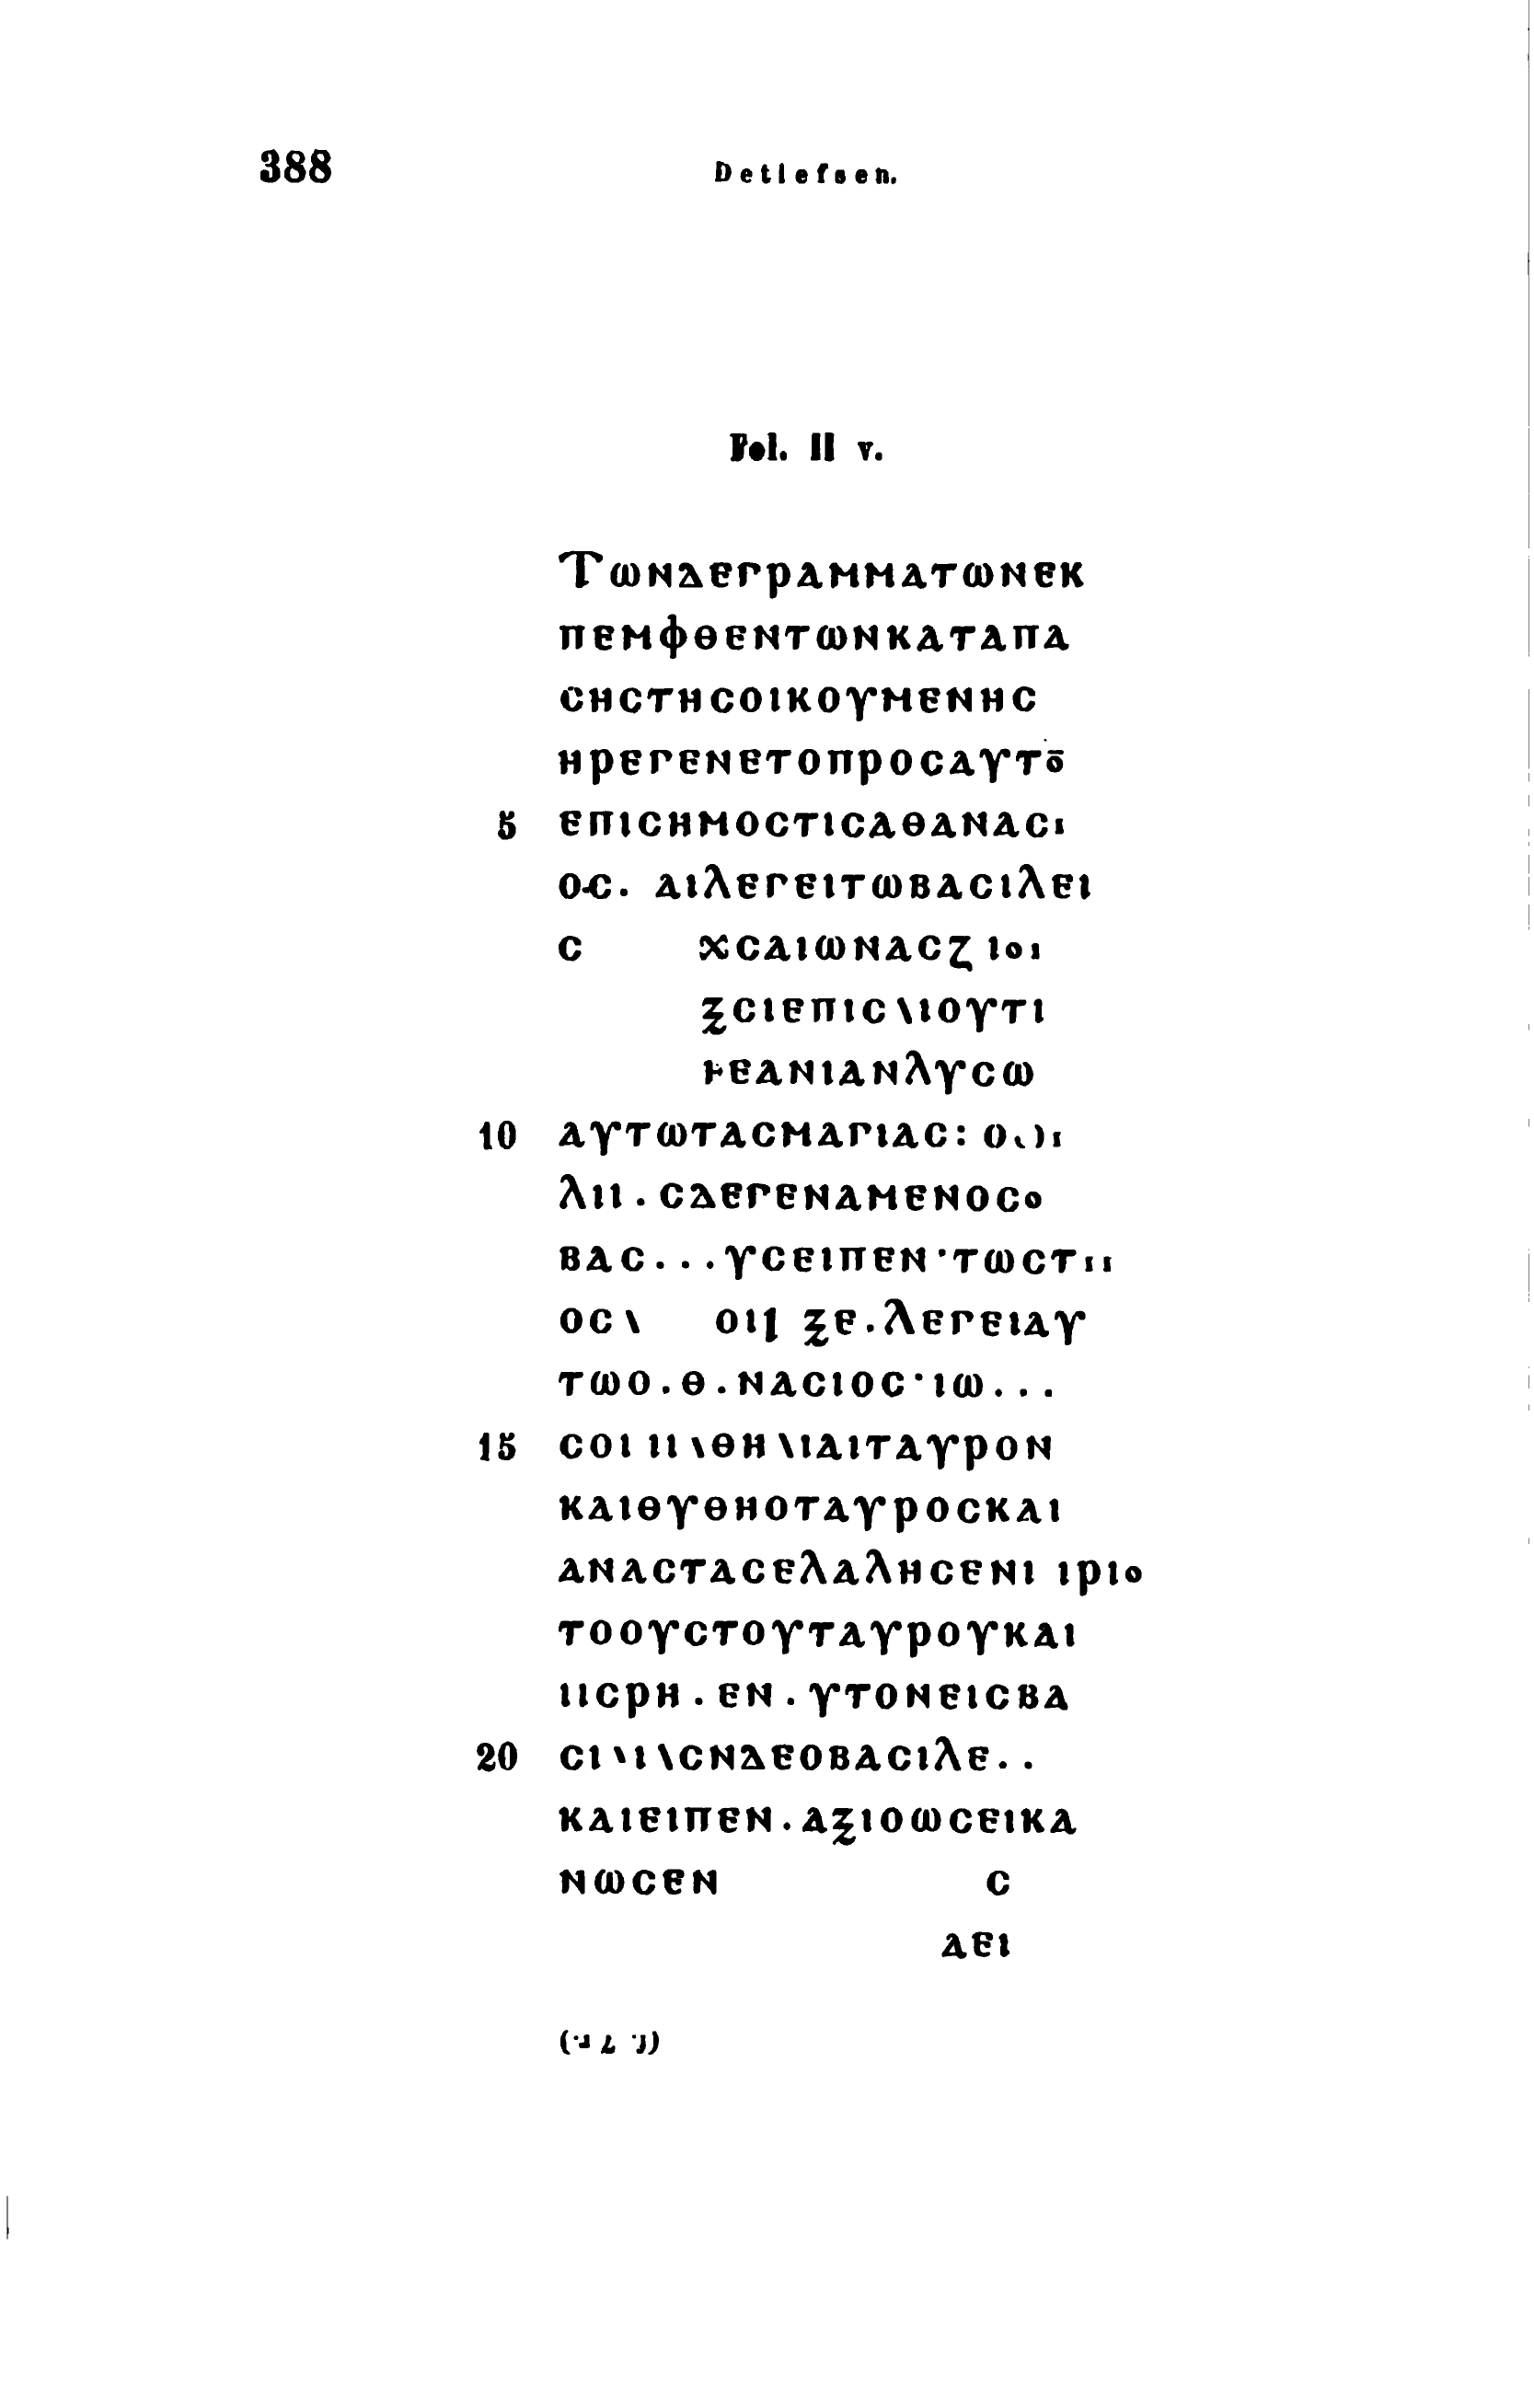 388 Detlefsen.
Fol. II v.
ΤωΝΔΕΓΡΑΜΜΑΤωΝΕΚ
ΠΕΜΦΘΕΝΤωΝΚΑΤΑΠΑ
СΗСΤΗСΟΙΚΟΥΜΕΝΗС
ΗΡΕΓΕΝΕΤΟΠΡΟСΑΥΤο̄
5 ΕΠΙСΗΜΟСΤΙСΑΘΑΝΑСΙ
ΟС. ΑΙΛΕΓΕΙΤωΒΑСΙΛΕΙ
С ΧСΑΙωΝΑСΖ ΙΟΙ
ΞСΙΕΠΙС\ΙΟΥΤΙ
ΕΑΝΙΑΝΛΥСω
10 ΑΥΤωΤΑСΜΑΓΙΑС:
ΛΙΙ.СΔΕΓΕΝΑΜΕΝΟСΟ
ΒΑС...ΥСΕΙΠΕΝ·ΤωСΤΙΙ
ΟС\ ΟΙΙ ΞΕ.ΛΕΓΕΙΑΥ
ΤωΟ.Θ.ΝΑСΙΟС·Ιω...
15 СΟΙ ΙΙ\ΘΗ\ΙΑΙΤΑΥΡΟΝ
ΚΑΙΘΥΘΗΟΤΑΥΡΟСΚΑΙ
ΑΝΑСΤΑСΕΛΑΛΗСΕΝΙ ΙΡΙΟ
ΤΟΟΥСΤΟΥΤΑΥΡΟΥΚΑΙ
ΙΙСΡΗ.ΕΝ.ΥΤΟΝΕΙСΒΑ
20 СΙ\Ι\СΝΔΕΟΒΑСΙΛΕ..
ΚΑΙΕΙΠΕΝ.ΑΞΙΟωСΕΙΚΑ
ΝωСΕΝ С
ΔΕΙ
(f. 7 r.)